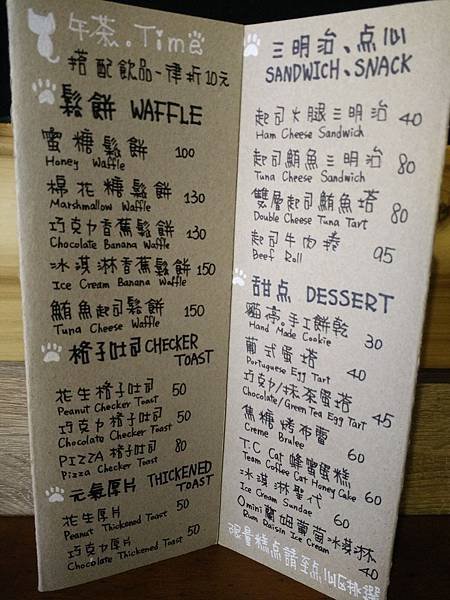 午茶。Time
搭配飲品一律折10元
鬆餅 WAFFLE
蜜糖鬆餅 100
Honey Waffle
棉花糖鬆餅 130
Marshmallow Waffle
巧克力香蕉鬆餅 130
Chocolate Banana Waffle
冰淇淋香蕉鬆餅 150
Ice Cream Banana Waffle
鮪魚起司鬆餅 150
Tuna Cheese Waffle
格子吐司 CHECKER
TOAST
花生格子吐司 50
Peanut Checker Toast
巧克力格子吐司 50
Chocolate Checker Toast
PIZZA 格子吐司 80
Pizza Checker Toast
元氣厚片 THICKENED
TOAST
花生厚片 50
Peanut Thickened Toast
巧克力厚片 50
Chocolate Thickened Toast
三明治、点心
SANDWICH、SNACK
起司火腿三明治 40
Ham Cheese Sandwich
起司鮪魚三明治 80
Tuna Cheese Sandwich
雙層起司鮪魚塔 80
Double Cheese Tuna Tart
起司牛肉捲 95
Beef Roll
甜点 DESSERT
貓停。手工餅乾 30
Hand Made Cookie
葡式蛋塔 40
Portuguese Egg Tart
巧克力/抹茶蛋塔 45
Chocolate/Green Tea Egg Tart
焦糖烤布蕾 60
Creme Brulee
T.C Cat 蜂蜜蛋糕 60
Team Coffee Cat Honey Cake
冰淇淋聖代 60
Ice Cream Sundae
Omini蘭姆葡萄冰淇淋 40
Rum Raisin Ice Cream
限量糕点請至点心區挑選